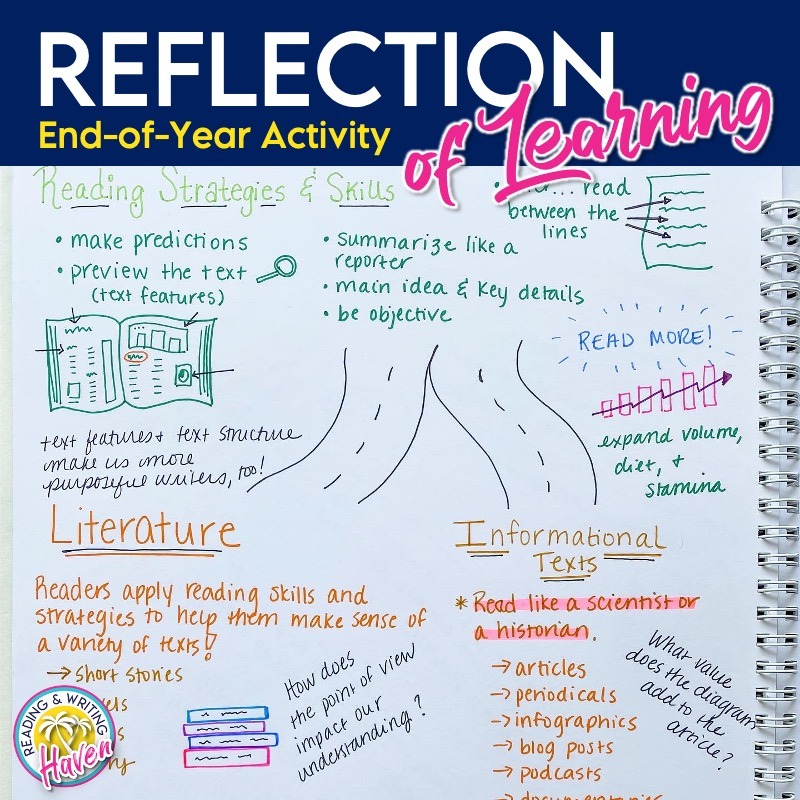 REFLECTION
of Learning
End-of-Year Activity
Reading Strategies & Skills
• make predictions
• preview the text
(text features)
• summarize like a
reporter
• main idea & key details
• be objective
read
between the
lines
READ MORE!
expand volume,
diet, +
stamina
text features + text structure
make us more
purposeful writers, too!
Literature
Readers apply reading skills and
strategies to help them make sense of
a variety of texts!
→ short stories
How does
the point of view
impact our
understanding?
Informational
Texts
* Read like a scientist or
a historian.
→ articles
→ periodicals
→ infographics
→ blog posts
→ podcasts
What value
does the diagram
add to the
article?
READING & WRITING
Haven